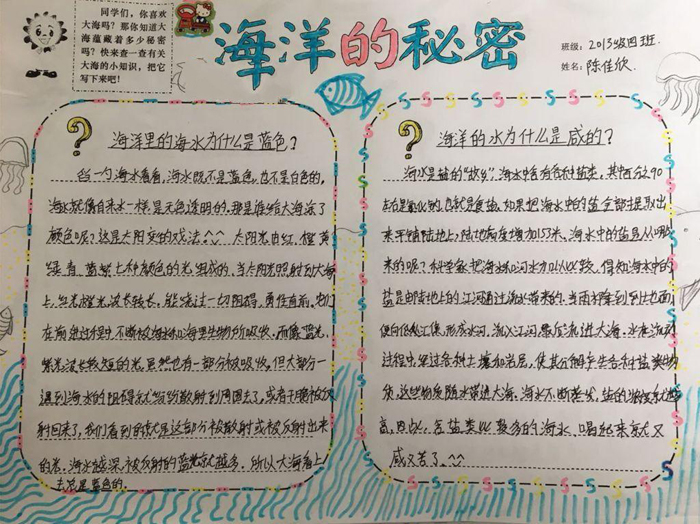 同学们，你喜欢
大海吗？那你知道大
海蕴藏着多少秘密
吗？快来查一查有关
大海的小知识，把它
写下来吧！
海洋的秘密
班级：2013级四班.
姓名：陈佳欣.
海洋里的海水为什么是蓝色？
舀一勺海水看看，海水既不是蓝色，也不是白色的，
海水就像自来水一样是无色透明的。那是谁给大海涂了
颜色呢？这是太阳变的戏法。^^ 太阳光由红、橙、黄、
绿、青、蓝、紫七种颜色的光组成的。当太阳照射到大海
上，红光、橙光波长较长，能绕过一切阻碍，勇往直前。它们
在前进过程中，不断被海水和海里生物所吸收。而像蓝光、
紫光波长较短的光，虽然也有一部分被吸收，但大部分一
遇到海水的阻碍就纷纷散射到周围去了，或者干脆被反
射回来了。我们看到的就是这部分被散射或被反射出来
的光。海水越深，被反射的蓝光就越多，所以大海看上
去总是蓝色的。
海洋的水为什么是咸的？
海水是盐的“故乡”，海水中含有各种盐类，其中百分之90
左右是氯化钠，也就是食盐。如果把海水中的盐全部提取出
来平铺陆地上，陆地高度增加153米。海水中的盐是从哪
来的呢？科学家把海水和河水加以比较，得知海水中的
盐是由陆地上的江河通过流水带来的。当雨水降到到地面，
便向低处汇集，形成小河，流入江河，最后流进大海。水在流动
过程中，经过各种土壤和岩层，使其分解产生各种盐类物
质，这些物质随水带进大海。海水不断蒸发，盐的浓度就越
高，因此，含盐类比较多的海水，喝起来就又
咸又苦了。^^